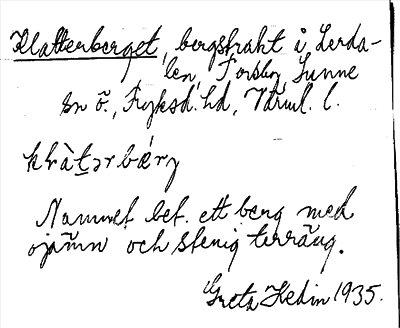 Klatterberget, bergstrakt i Lerda-
len, Forsby, Sunne
sn ö., Fryksd. hd, Värml. l.
Namnet bet. ett berg med
ojämn och stenig terräng.
Greta Hedin 1935.